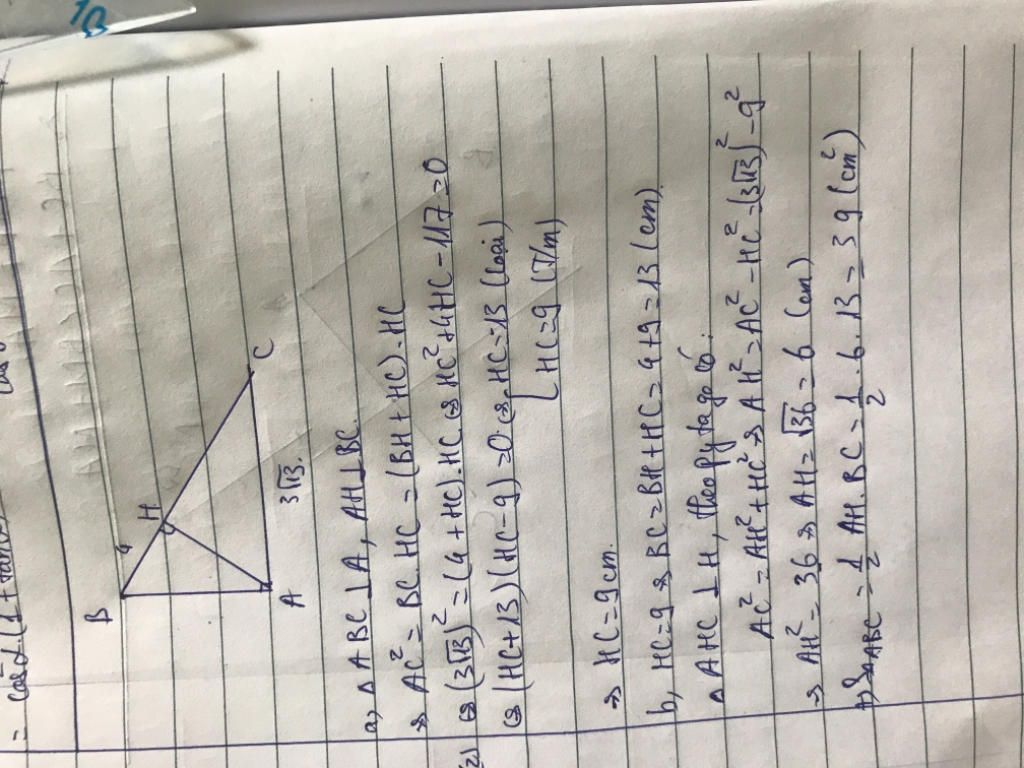 1B
= cos²α.(1+tan
B
4
H
C
A
3√13.
a, △ABC ⊥ A, AH⊥BC.
⇒ AC² = BC.HC = (BH+HC).HC
⇔ (3√13)² = (4+HC).HC ⇔ HC²+4HC-117=0
⇔ (HC+13)(HC-9)=0 ⇔ [HC=-13 (loại)
[HC=9 (T/m)
⇒ HC=9cm.
b, HC=9 ⇒ BC=BH+HC=4+9=13(cm).
△AHC ⊥ H, theo Pytago có:
AC²=AH²+HC² ⇒ AH²=AC²-HC²=(3√13)²-9²
⇒ AH²=36 ⇒ AH=√36=6 (cm)
⇒ S△ABC = 1/2 AH.BC = 1/2 . 6 . 13 = 39 (cm²)